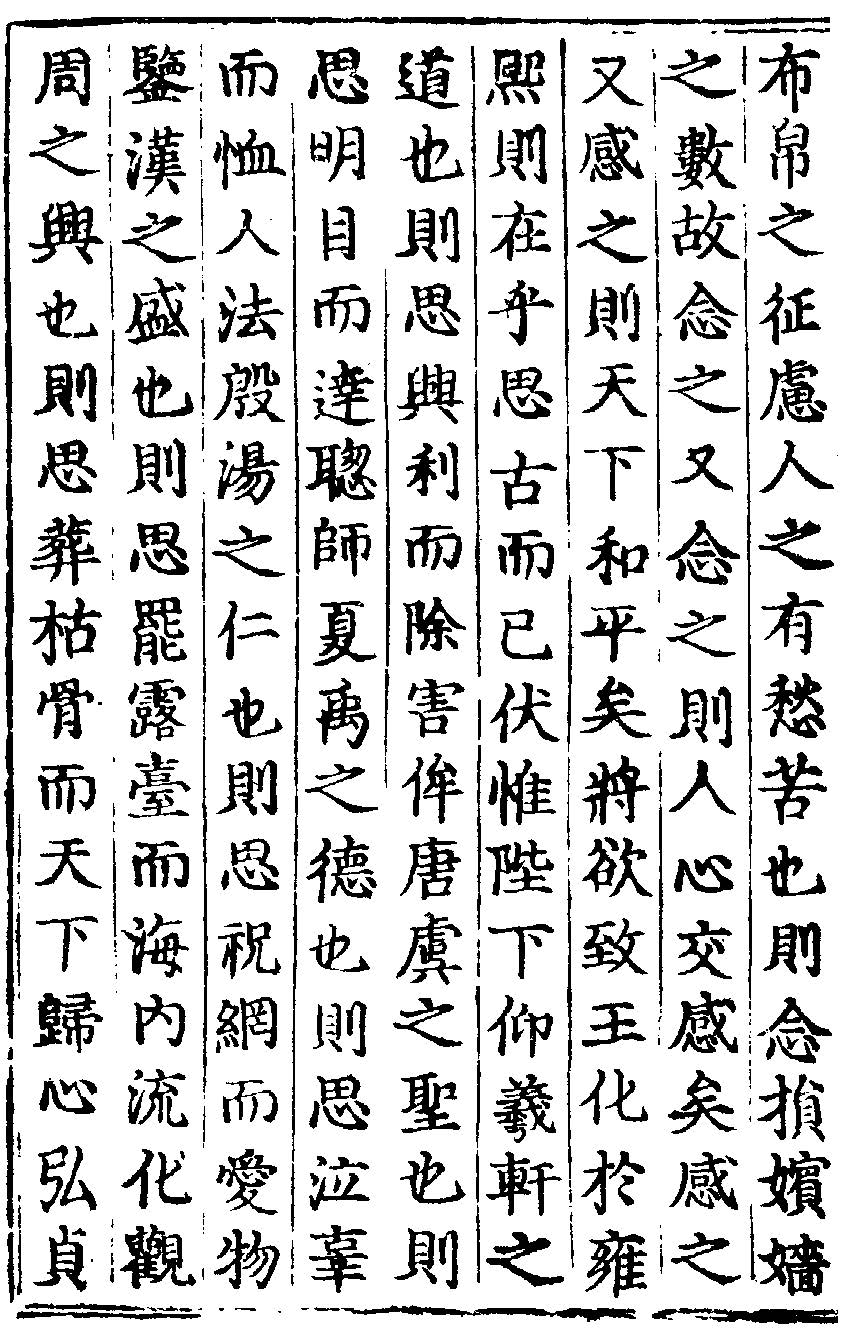 布帛之征慮人之有愁苦也則念損嬪嬙
之數故念之又念之則人心交感矣感之
又感之則天下和平矣將欲致王化於雍
熙則在乎思古而已伏惟陛下仰羲軒之
道也則思興利而除害侔唐虞之聖也則
思明目而達聰師夏禹之德也則思泣辜
而恤人法殷湯之仁也則思祝網而愛物
鑒漢之盛也則思罷露臺而海內流化觀
周之興也則思葬枯骨而天下歸心弘貞